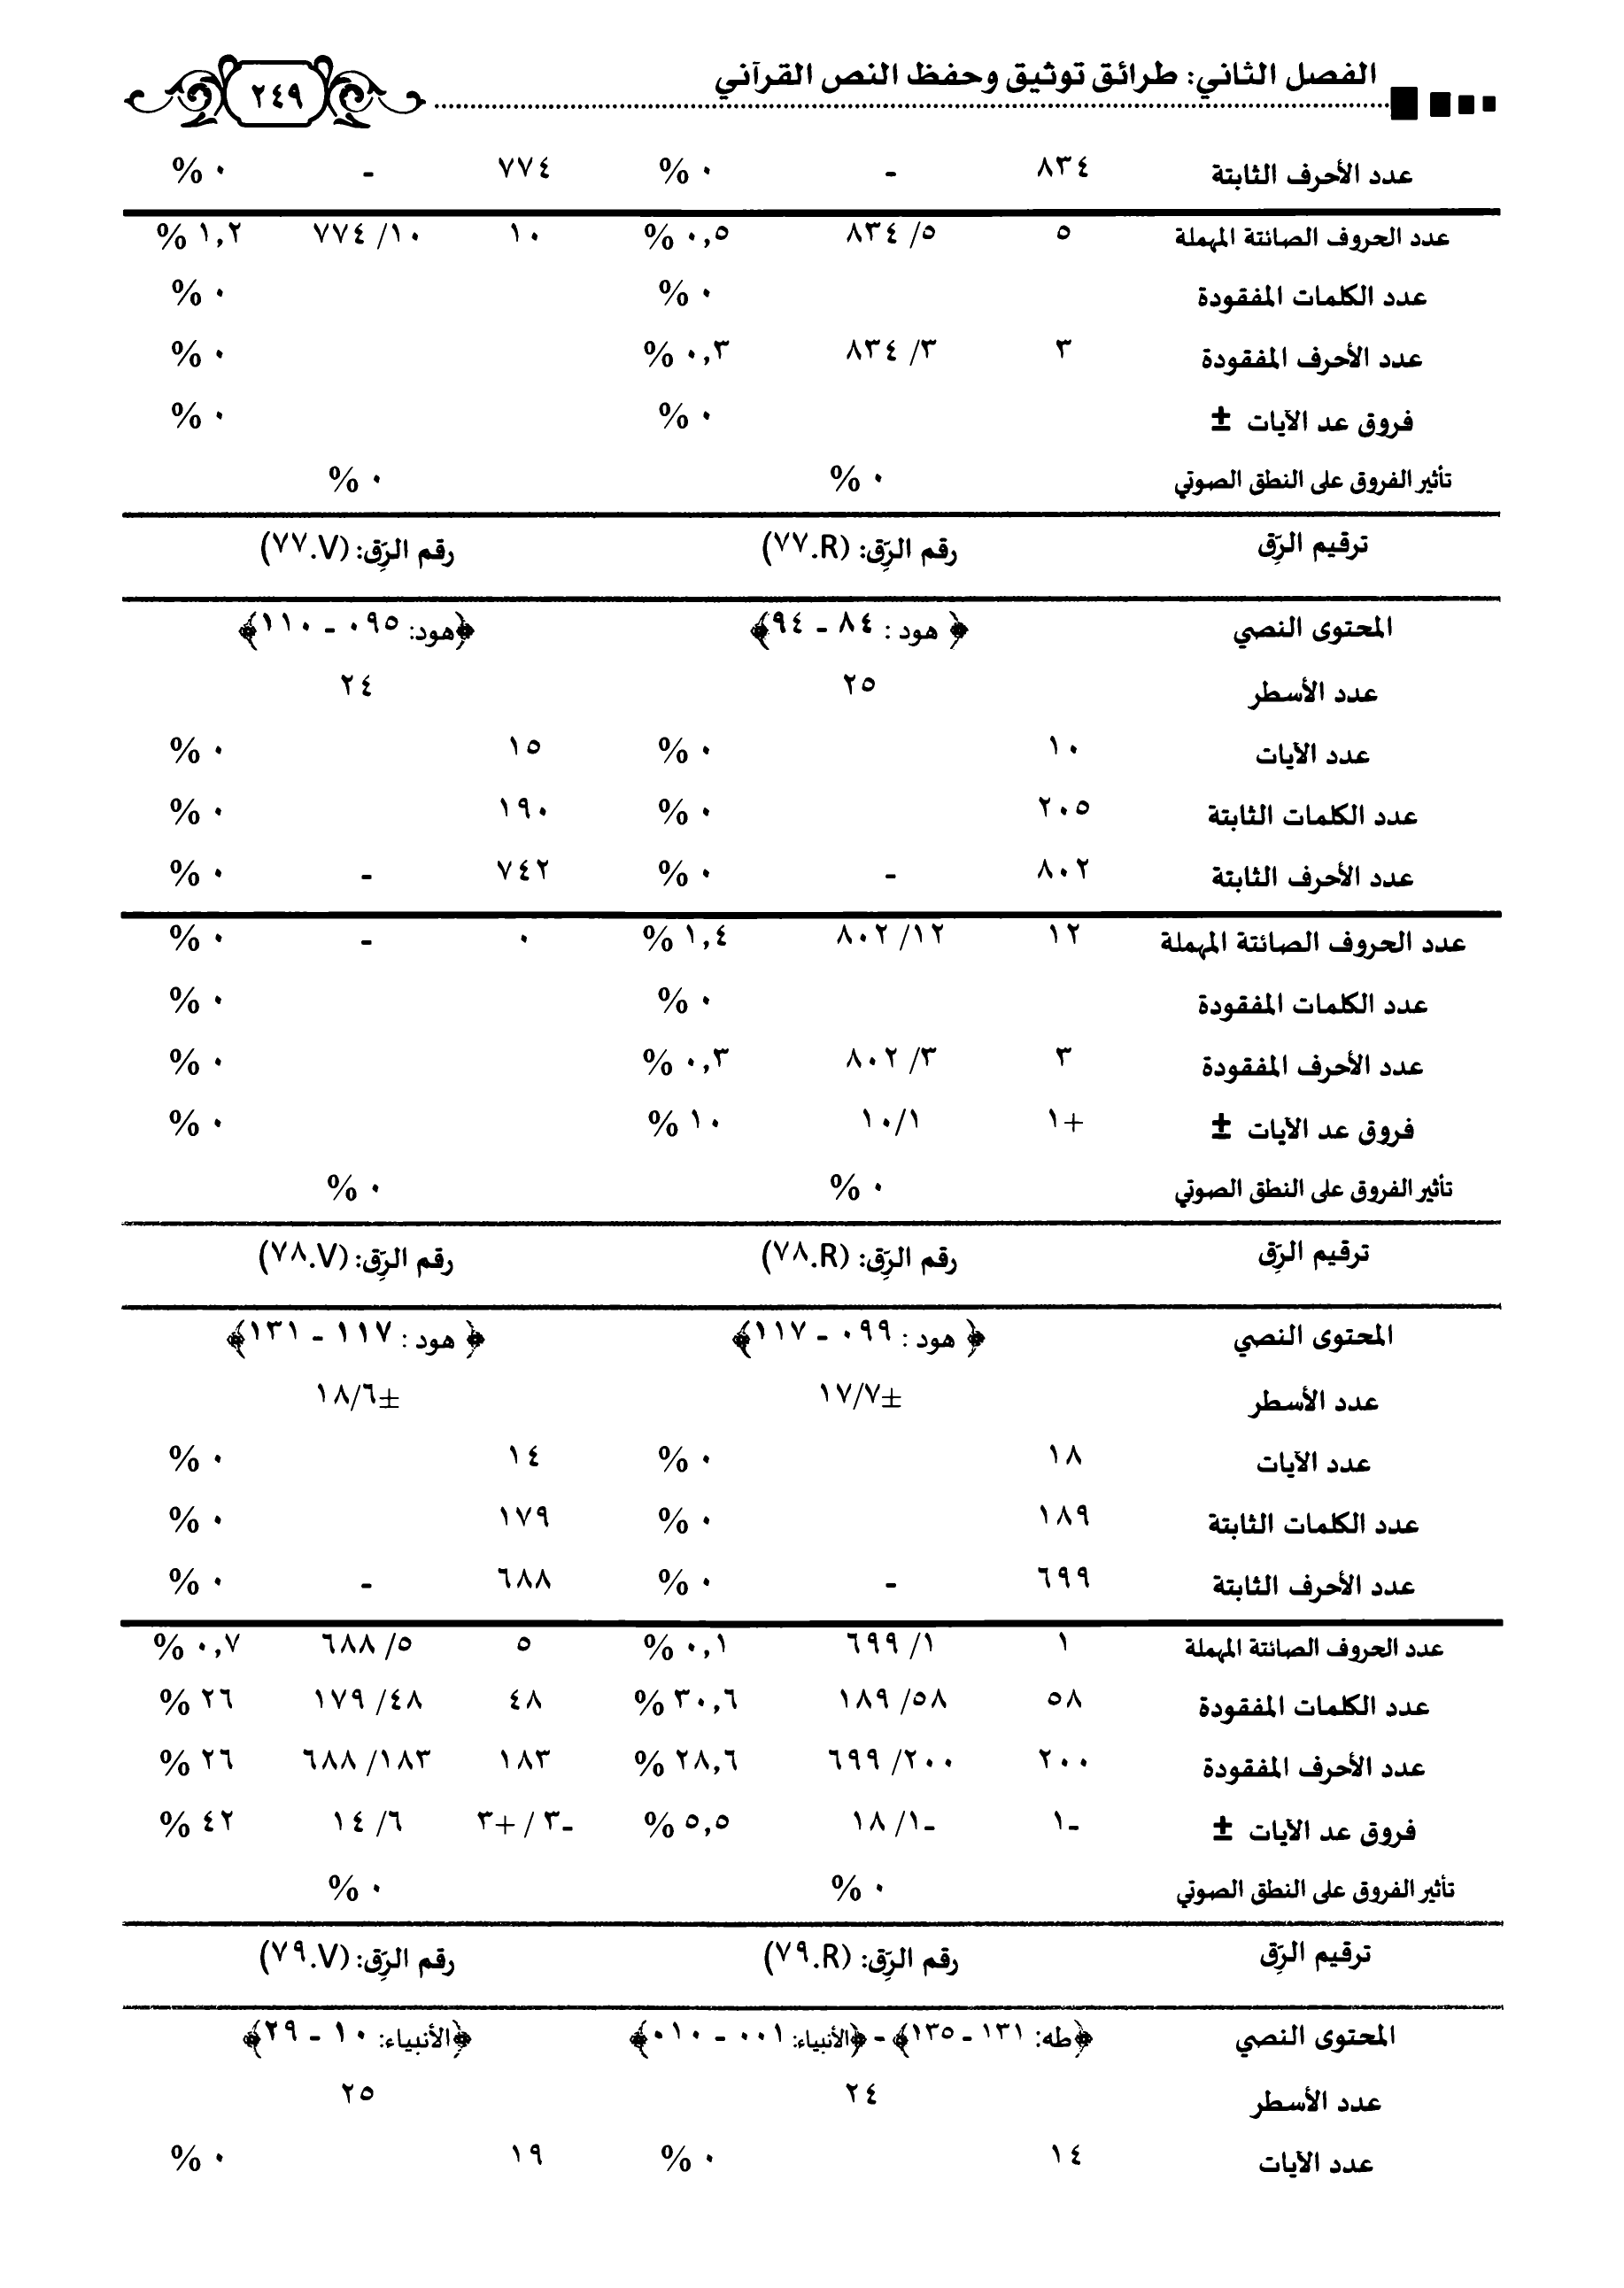 الفصل الثاني: طرائق توثيق وحفظ النص القرآني ٢٤٩
عدد الأحرف الثابتة ٨٣٤ - ٠ % ٧٧٤ - ٠ %
عدد الحروف الصائتة المهملة ٥ ٥/ ٨٣٤ ٠,٥ % ١٠ ١٠/ ٧٧٤ ١,٢ %
عدد الكلمات المفقودة ٠ % ٠ %
عدد الأحرف المفقودة ٣ ٣/ ٨٣٤ ٠,٣ % ٠ %
فروق عد الآيات ± ٠ % ٠ %
تأثير الفروق على النطق الصوتي ٠ % ٠ %
ترقيم الرِّق رقم الرِّق: (٧٧.R) رقم الرِّق: (٧٧.V)
المحتوى النصي ﴿ هود : ٨٤ - ٩٤﴾ ﴿هود: ٠٩٥ - ١١٠﴾
عدد الأسطر ٢٥ ٢٤
عدد الآيات ١٠ ٠ % ١٥ ٠ %
عدد الكلمات الثابتة ٢٠٥ ٠ % ١٩٠ ٠ %
عدد الأحرف الثابتة ٨٠٢ - ٠ % ٧٤٢ - ٠ %
عدد الحروف الصائتة المهملة ١٢ ١٢/ ٨٠٢ ١,٤ % ٠ - ٠ %
عدد الكلمات المفقودة ٠ % ٠ %
عدد الأحرف المفقودة ٣ ٣/ ٨٠٢ ٠,٣ % ٠ %
فروق عد الآيات ± +١ ١٠/١ ١٠ % ٠ %
تأثير الفروق على النطق الصوتي ٠ % ٠ %
ترقيم الرِّق رقم الرِّق: (٧٨.R) رقم الرِّق: (٧٨.V)
المحتوى النصي ﴿ هود : ٠٩٩ - ١١٧﴾ ﴿ هود : ١١٧ - ١٣١﴾
عدد الأسطر ±١٧/٧ ±١٨/٦
عدد الآيات ١٨ ٠ % ١٤ ٠ %
عدد الكلمات الثابتة ١٨٩ ٠ % ١٧٩ ٠ %
عدد الأحرف الثابتة ٦٩٩ - ٠ % ٦٨٨ - ٠ %
عدد الحروف الصائتة المهملة ١ ١/ ٦٩٩ ٠,١ % ٥ ٥/ ٦٨٨ ٠,٧ %
عدد الكلمات المفقودة ٥٨ ٥٨/ ١٨٩ ٣٠,٦ % ٤٨ ٤٨/ ١٧٩ ٢٦ %
عدد الأحرف المفقودة ٢٠٠ ٢٠٠/ ٦٩٩ ٢٨,٦ % ١٨٣ ١٨٣/ ٦٨٨ ٢٦ %
فروق عد الآيات ± -١ -١/ ١٨ ٥,٥ % -٣ / +٣ ٦/ ١٤ ٤٢ %
تأثير الفروق على النطق الصوتي ٠ % ٠ %
ترقيم الرِّق رقم الرِّق: (٧٩.R) رقم الرِّق: (٧٩.V)
المحتوى النصي ﴿طه: ١٣١ - ١٣٥﴾ - ﴿الأنبياء: ٠٠١ - ٠١٠﴾ ﴿الأنبياء: ١٠ - ٢٩﴾
عدد الأسطر ٢٤ ٢٥
عدد الآيات ١٤ ٠ % ١٩ ٠ %